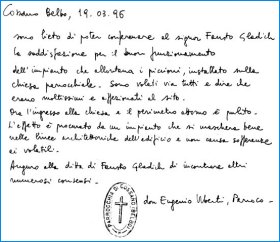 Cossano Belbo, 19.03.96
sono lieto di poter confermare al signor Fausto Gladich
la soddisfazione per il buon funzionamento
dell'impianto che allontana i piccioni, installato sulla
chiesa parrochiale. Sono volati via tutti e dire che
erano moltissimi e affezionati al sito.
Ora l'ingresso alla chiesa e il perimetro attorno è pulito.
L'effetto è procurato da un impianto che si maschera bene
nelle linee architettoniche dell'edificio e non causa sofferenze
ai volatili.
Auguro alla ditta di Fausto Gladich di incontrare altri
numerosi consensi.
don Eugenio Uberti, Parroco
PARROCCHIA COSSANO BELBO